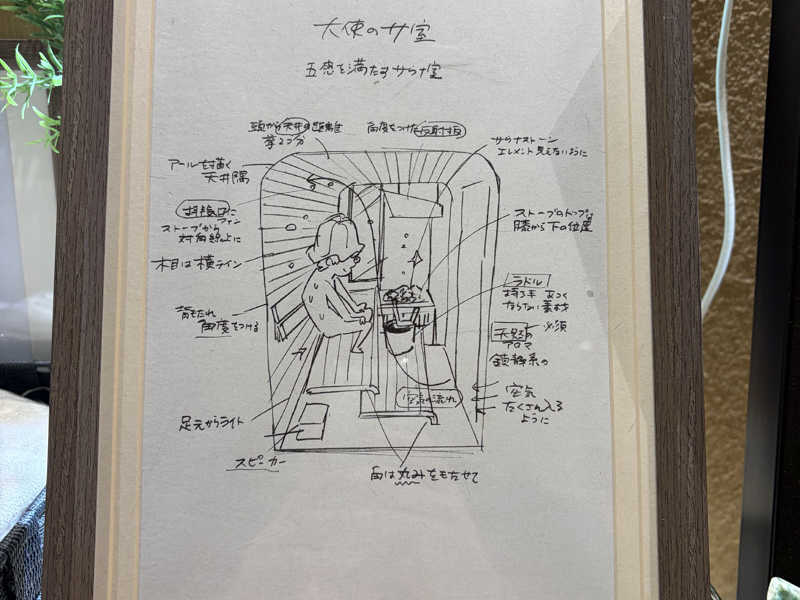 大使のサ室
五感を満たすサウナ室
頭から天井の距離
拳2つ分
角度をつけた反射板
サウナストーン
エレメント見えないように
アールを描く
天井隅
排気口に
ファン
ストーブから
対角線上に
ストーブのトップは
膝から下の位置
木目は横ライン
ラドル
持つ手 あつく
ならない素材
背もたれ
角度をつける
必須
天然の
アロマ
鎮静系の
空気の流れ
空気
たくさん入る
ように
足元からライト
スピーカー
角は丸みをもたせて